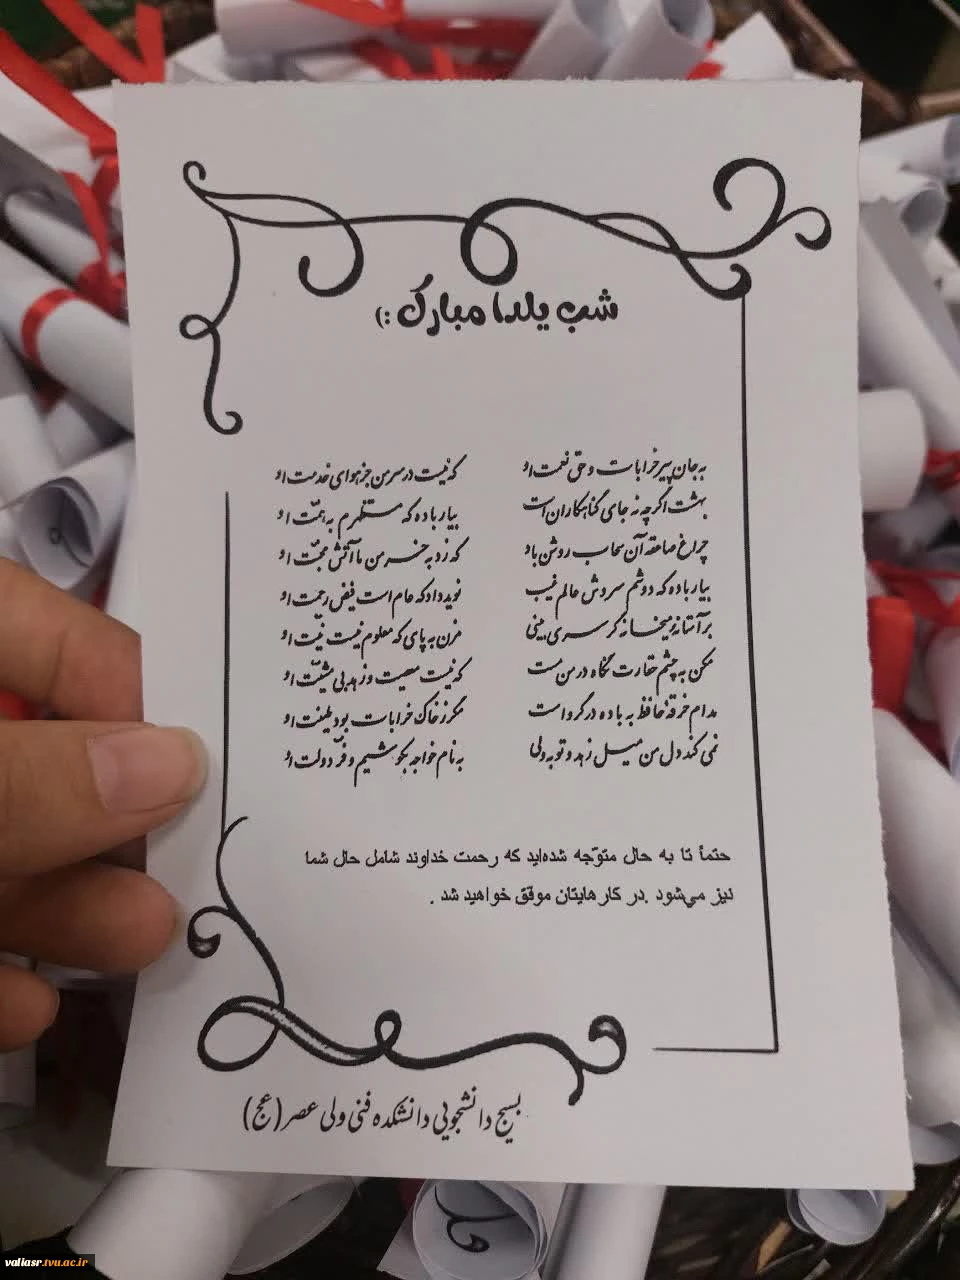 شب یلدا مبارک :)
به جان پیر خرابات و حق نعمت او که نیست در سر من جز هوای خدمت او
بهشت اگر چه نه جای گناهکاران است بیار باده که مستظهرم به همّت او
چراغ صاعقه آن سحاب روشن باد که زد به خرمن ما آتش محبّت او
بیار باده که دوشم سروش عالم غیب نوید داد که عام است فیض رحمت او
بر آستانهٔ میخانه گر سری بینی مزن به پای که معلوم نیست نیت او
مکن به چشم حقارت نگاه در من مست که نیست معصیت و زهد بی مشیّت او
مدام خرقهٔ حافظ به باده در گرو است مگر ز خاک خرابات بود طینت او
نمی کند دل من میل زهد و توبه ولی به نام خواجه بکوشیم و فرّ دولت او
حتماً تا به حال متوّجه شده‌اید که رحمت خداوند شامل حال شما
نیز می‌شود .در کارهایتان موفق خواهید شد .
بسیج دانشجویی دانشکده فنی ولی عصر (عج)
valiasr.tvu.ac.ir